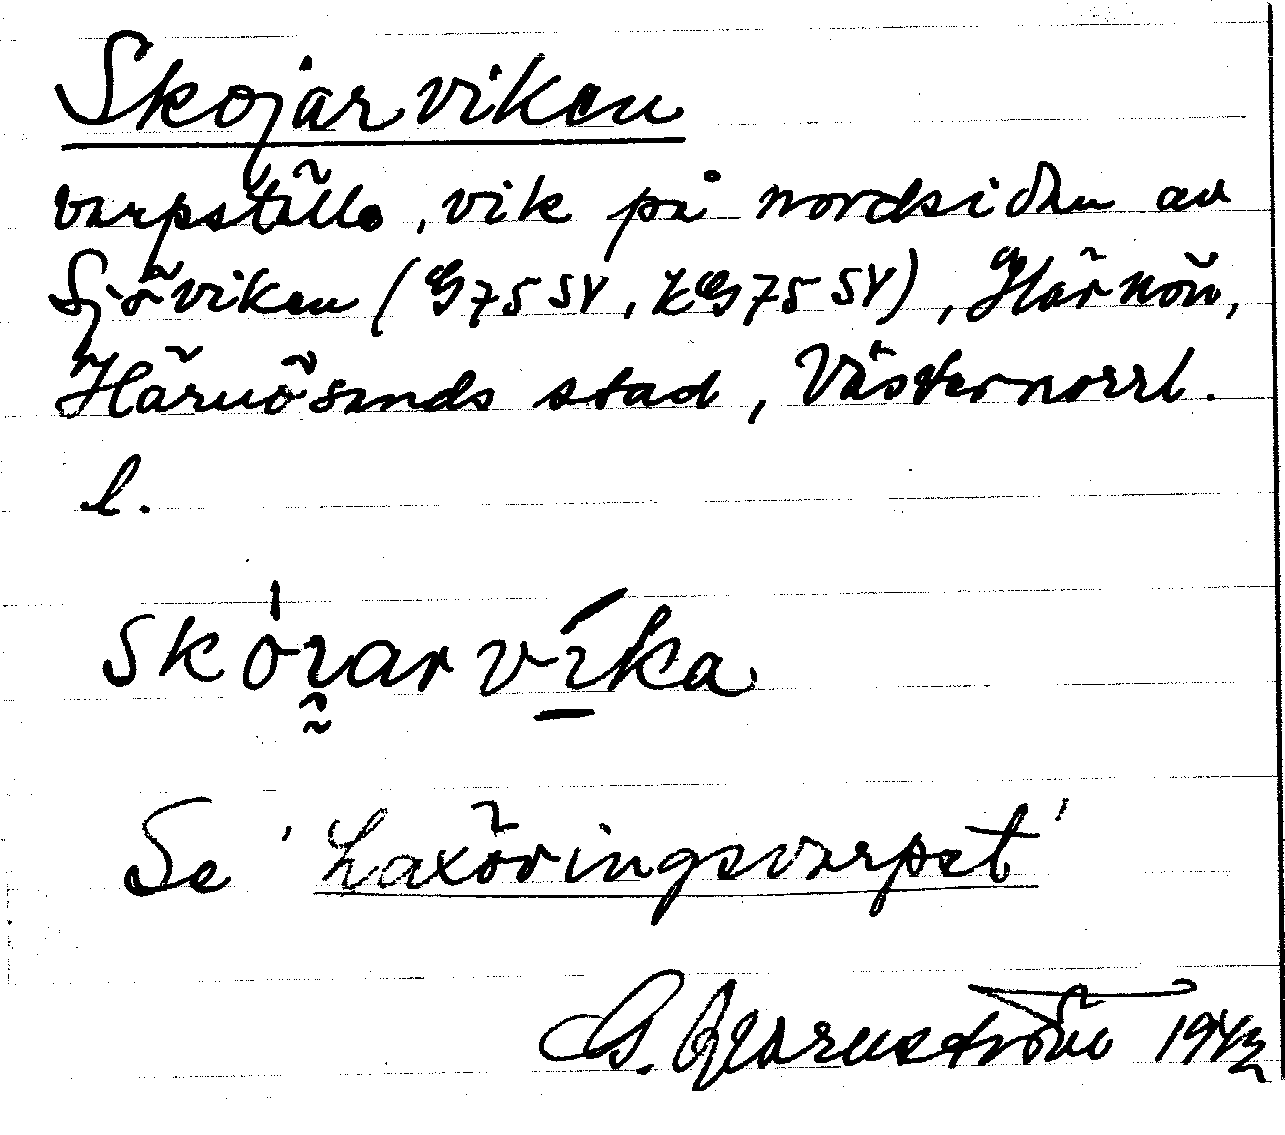 Skojarviken
varpställe, vik på nordsidan av
Sjöviken (G75SV, kG75SV), Härnön,
Härnösands stad, Västernorrl.
l.
skóı̯arvíka
Se 'Laxöringsvarpet'
G. Bjärnström 1943